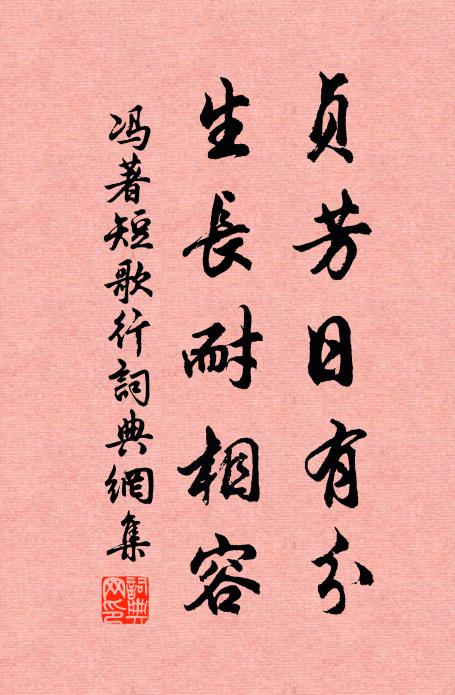 貞芳日有分
生長耐相容
冯著短歌行詞典網集
詞典
网印